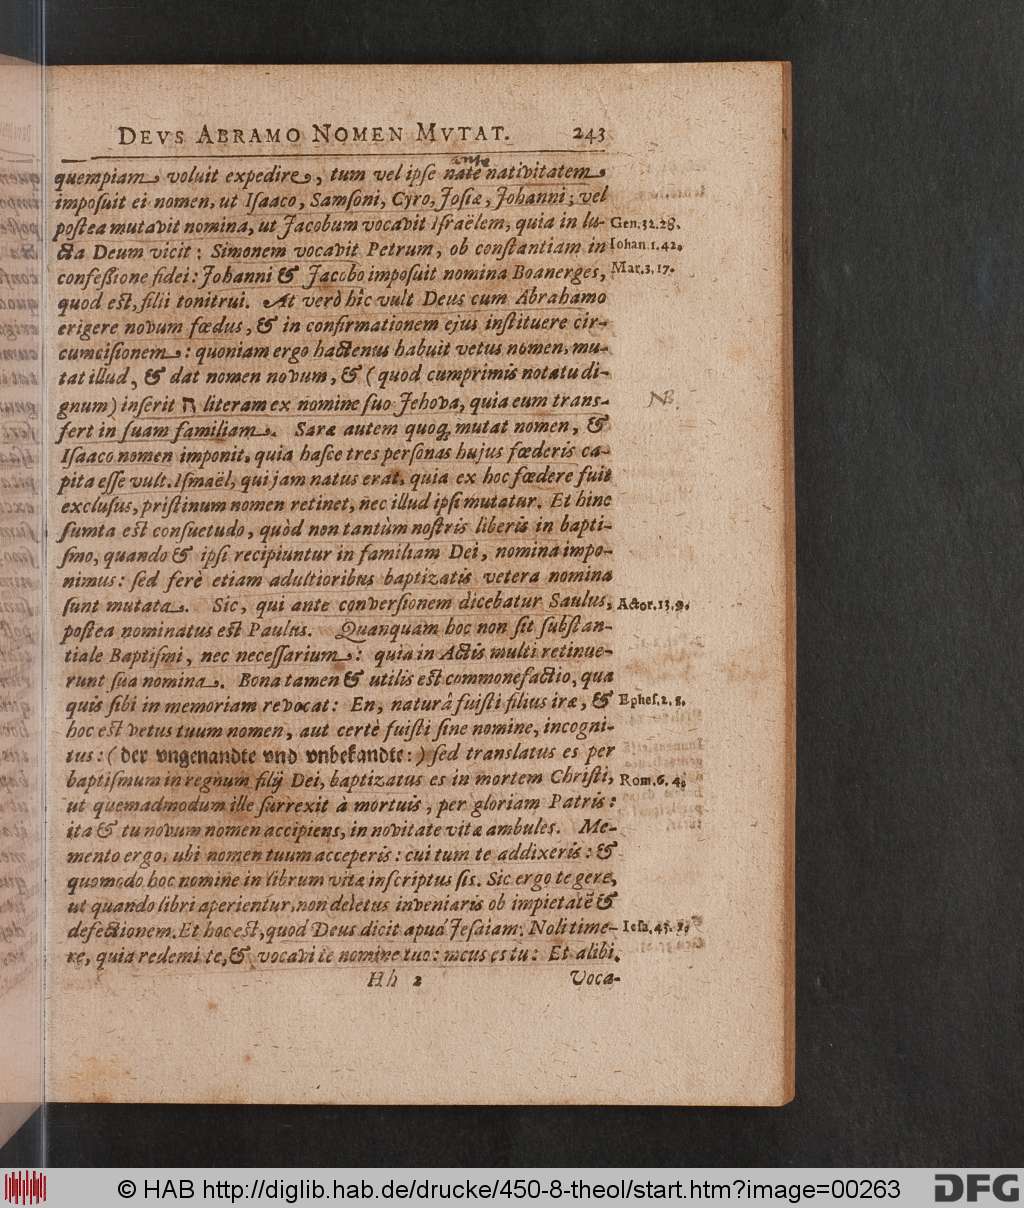 DEVS ABRAMO NOMEN MVTAT. 243
quempiam voluit expedire, tum vel ipse nate nativitatem
ante
imposuit ei nomen, ut Isaaco, Samsoni, Cyro, Josiæ, Johanni; vel
postea mutavit nomina, ut Jacobum vocavit Israëlem, quia in lu- Gen. 32. 28.
cta Deum vicit: Simonem vocavit Petrum, ob constantiam in Iohan. 1. 42.
confeßione fidei: Johanni & Jacobo imposuit nomina Boanerges, Mar. 3. 17.
quod est, filii tonitrui. At verò hîc vult Deus cum Abrahamo
erigere novum fœdus, & in confirmationem ejus instituere cir-
cumcisionem: quoniam ergo hactenus habuit vetus nomen, mu-
tat illud, & dat nomen novum, & (quod cumprimis notatu di-
gnum) inserit ה literam ex nomine suo Jehova, quia eum trans- NB.
fert in suam familiam. Saræ autem quoq; mutat nomen, &
Isaaco nomen imponit, quia hasce tres personas hujus fœderis ca-
pita esse vult. Ismaël, qui jam natus erat, quia ex hoc fœdere fuit
exclusus, pristinum nomen retinet, nec illud ipsi mutatur. Et hinc
sumta est consuetudo, quòd non tantùm nostris liberis in bapti-
smo, quando & ipsi recipiuntur in familiam Dei, nomina impo-
nimus: sed ferè etiam adultioribus baptizatis vetera nomina
sunt mutata. Sic, qui ante conversionem dicebatur Saulus, Actor. 13. 9.
postea nominatus est Paulus. Quanquam hoc non sit substan-
tiale Baptismi, nec necessarium: quia in Actis multi retinue-
runt sua nomina. Bona tamen & utilis est commonefactio, qua
quis sibi in memoriam revocat: En, naturâ fuisti filius iræ, & Ephes. 2. 8.
hoc est vetus tuum nomen, aut certè fuisti sine nomine, incogni-
tus: (der vngenandte vnd vnbekandte:) sed translatus es per
baptismum in regnum filij Dei, baptizatus es in mortem Christi, Rom. 6. 4.
ut quemadmodum ille surrexit à mortuis, per gloriam Patris:
ita & tu novum nomen accipiens, in novitate vitæ ambules. Me-
mento ergo, ubi nomen tuum acceperis: cui tum te addixeris: &
quomodo hoc nomine in librum vitæ inscriptus sis. Sic ergo te gere,
ut quando libri aperientur, non deletus inveniaris ob impietatē &
defectionem. Et hoc est, quod Deus dicit apud Jesaiam: Noli time- Iesa. 43.
re, quia redemi te, & vocavi te nomine tuo: meus es tu: Et alibi,
Hh 2 Voca-
© HAB http://diglib.hab.de/drucke/450-8-theol/start.htm?image=00263 DFG